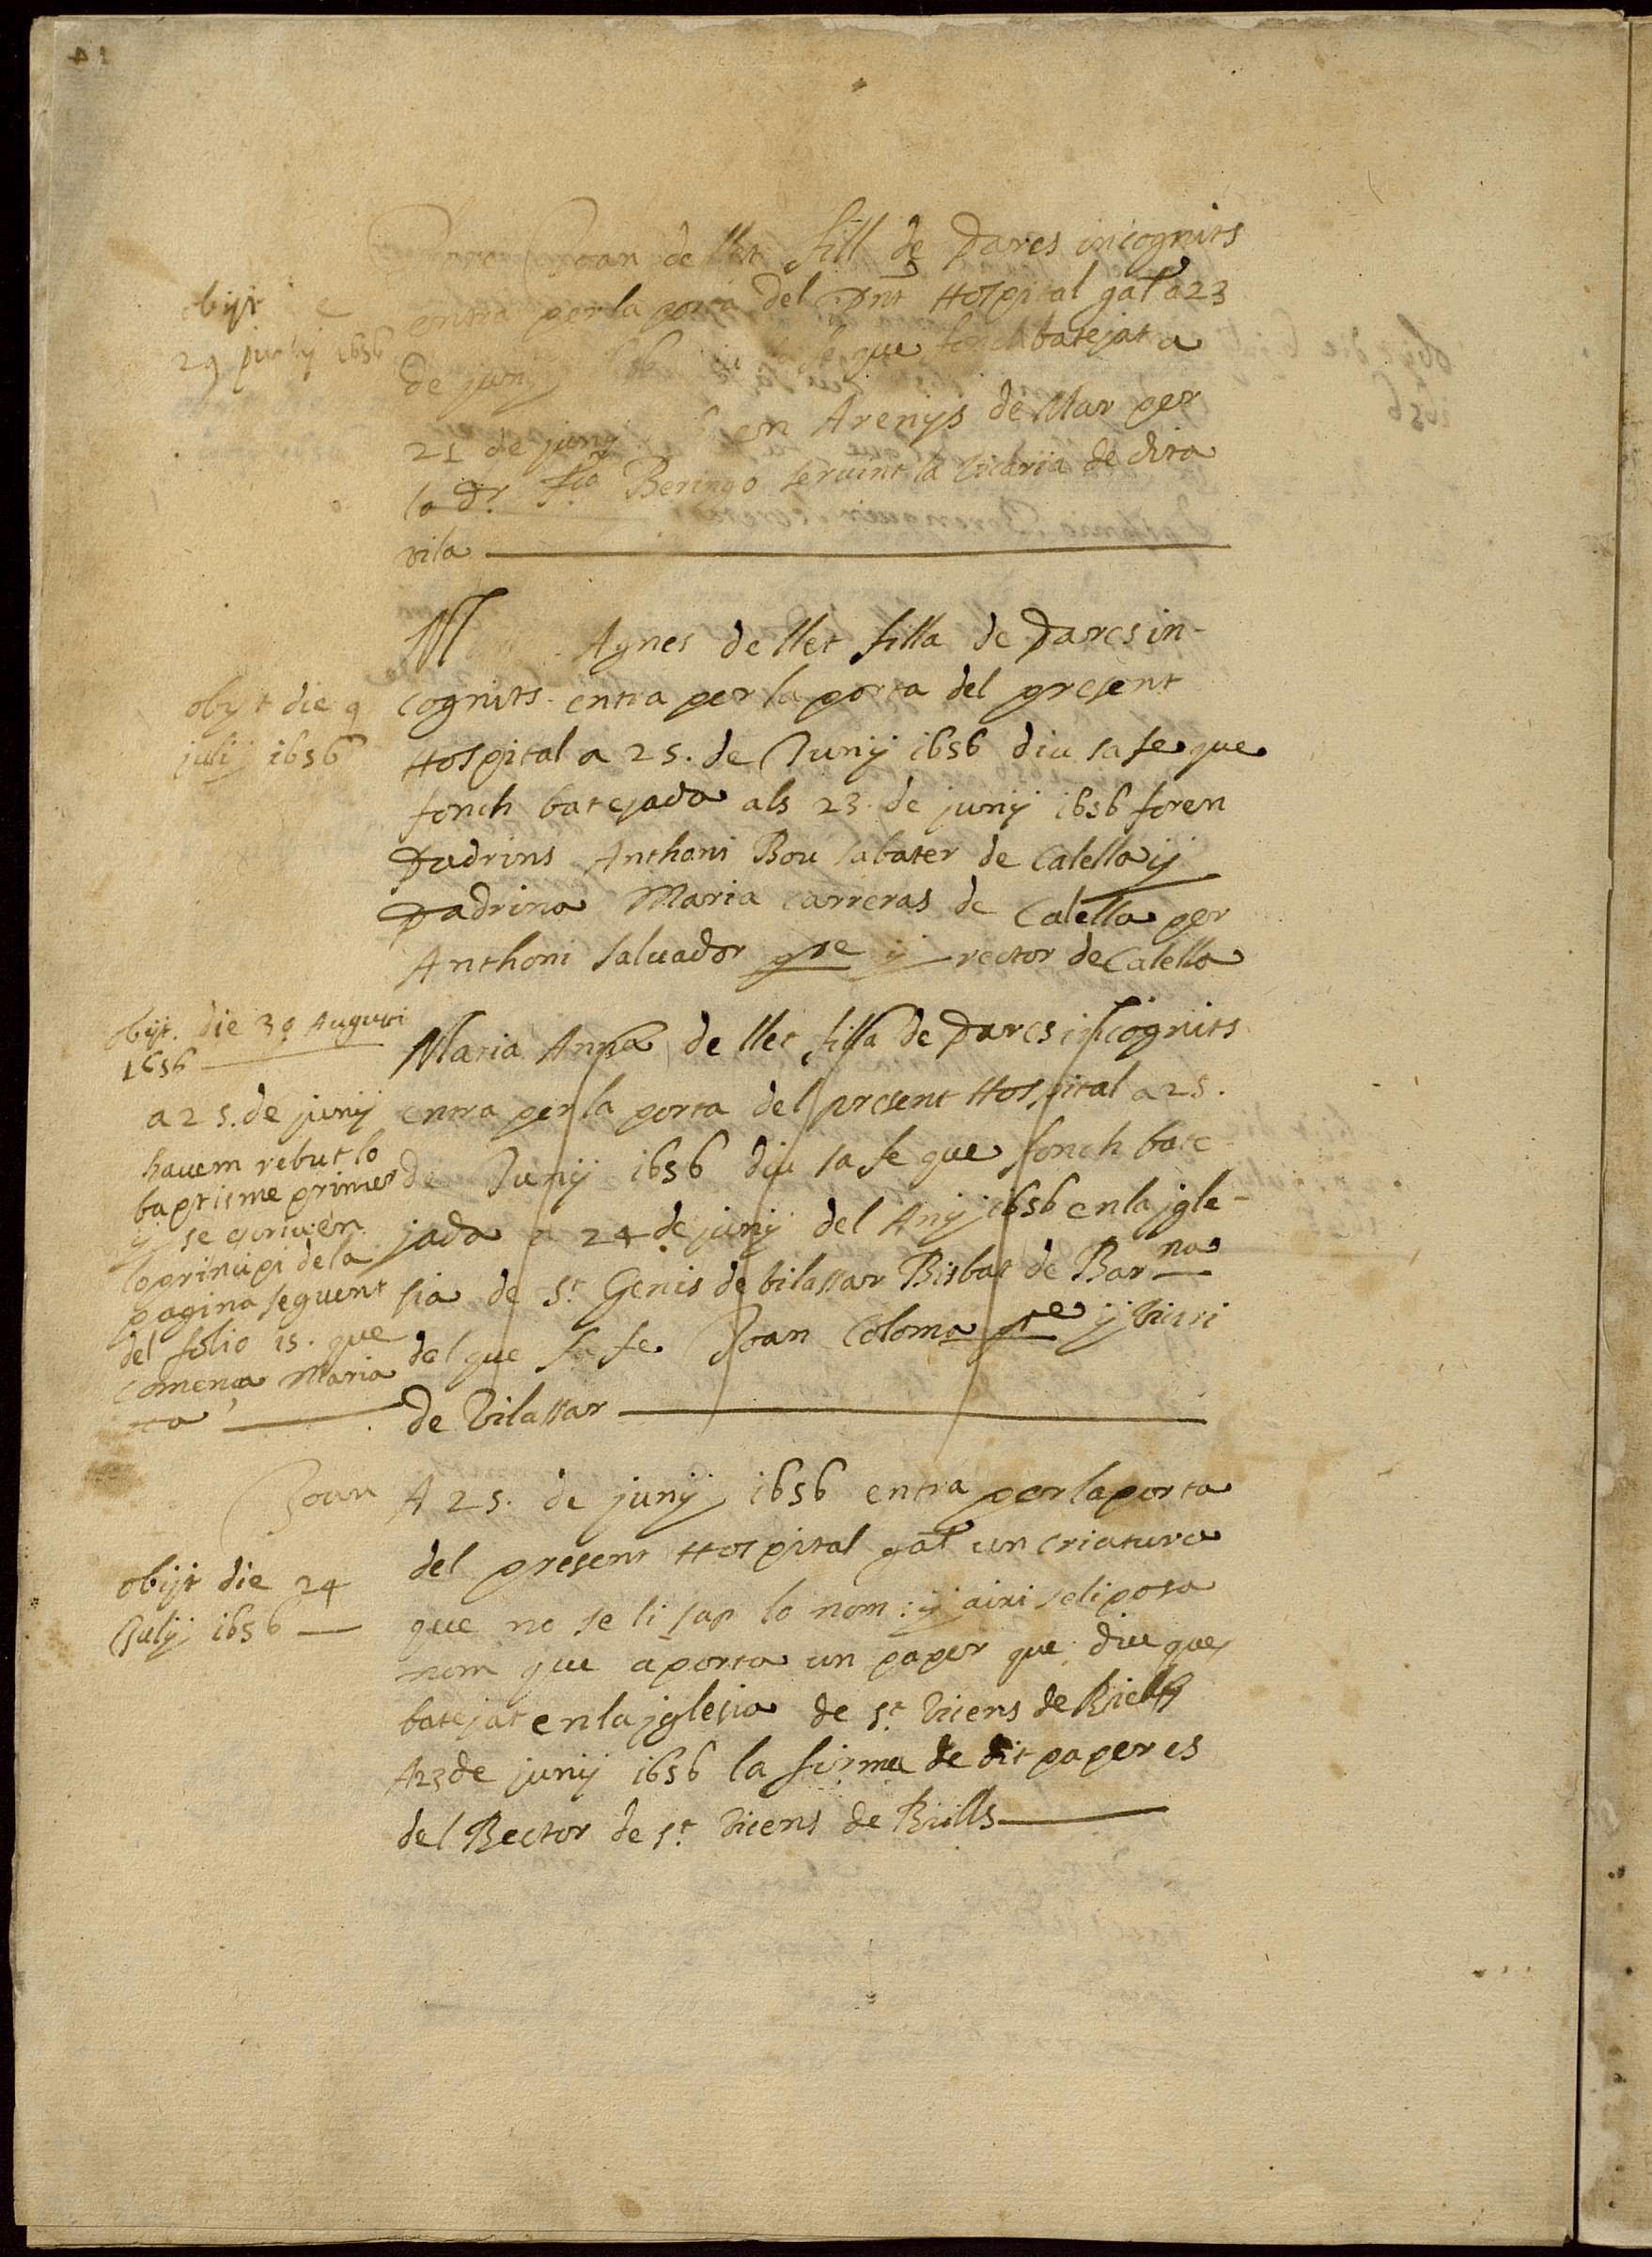 Joan de llet fill de Pares incognits
entra per la porta del Pnt Hospital gñal a 23
de juny que fonch batejat a
21 de juny en Arenys de Mar per
lo Dr. Beringo servint la Vicaria de dita
vila
obijt
29 1656
M Agnes de llet filla de Pares in-
cognits. entra per la porta del present
Hospital a 25. de Junij 1656 diu sa fe que
fonch batejada als 23. de junij 1656 foren
Padrins Anthoni Bou sabater de Calella ÿ
Padrina Maria carreras de Calella per
Anthoni saluador pre ÿ rector de Calella
obijt die 9
julij 1656
Maria Anna de llet filla de Pares incognits
entra per la porta del present Hospital a 25.
de Junij 1656 diu sa fe que fonch bate-
jada a 24 de junij del Any 1656 en la jgle-
sia de St. Genis de bilassar Bisbat de Barna
del que fa fe Joan Coloma pre ÿ Vicari
de Vilassar
obijt. die 30 Augusti
1656
a 25. de junij
hauem rebut lo
baptisme primer
ÿ se escriu en
lo principi de la
pagina seguent
del folio 15. que
comença Maria
Joan
A 25. de junij 1656 entra per la porta
del present Hospital gñal un criatura
que no se li sap lo nom: ÿ aixi se li posa
nom que aporta un paper que diu que
batejat en la jglesia de St. Vicens de Riells
A 23 de junij 1656 la firma de dit paper es
del Rector de St. Vicens de Riells
obijt die 24
Julij 1656